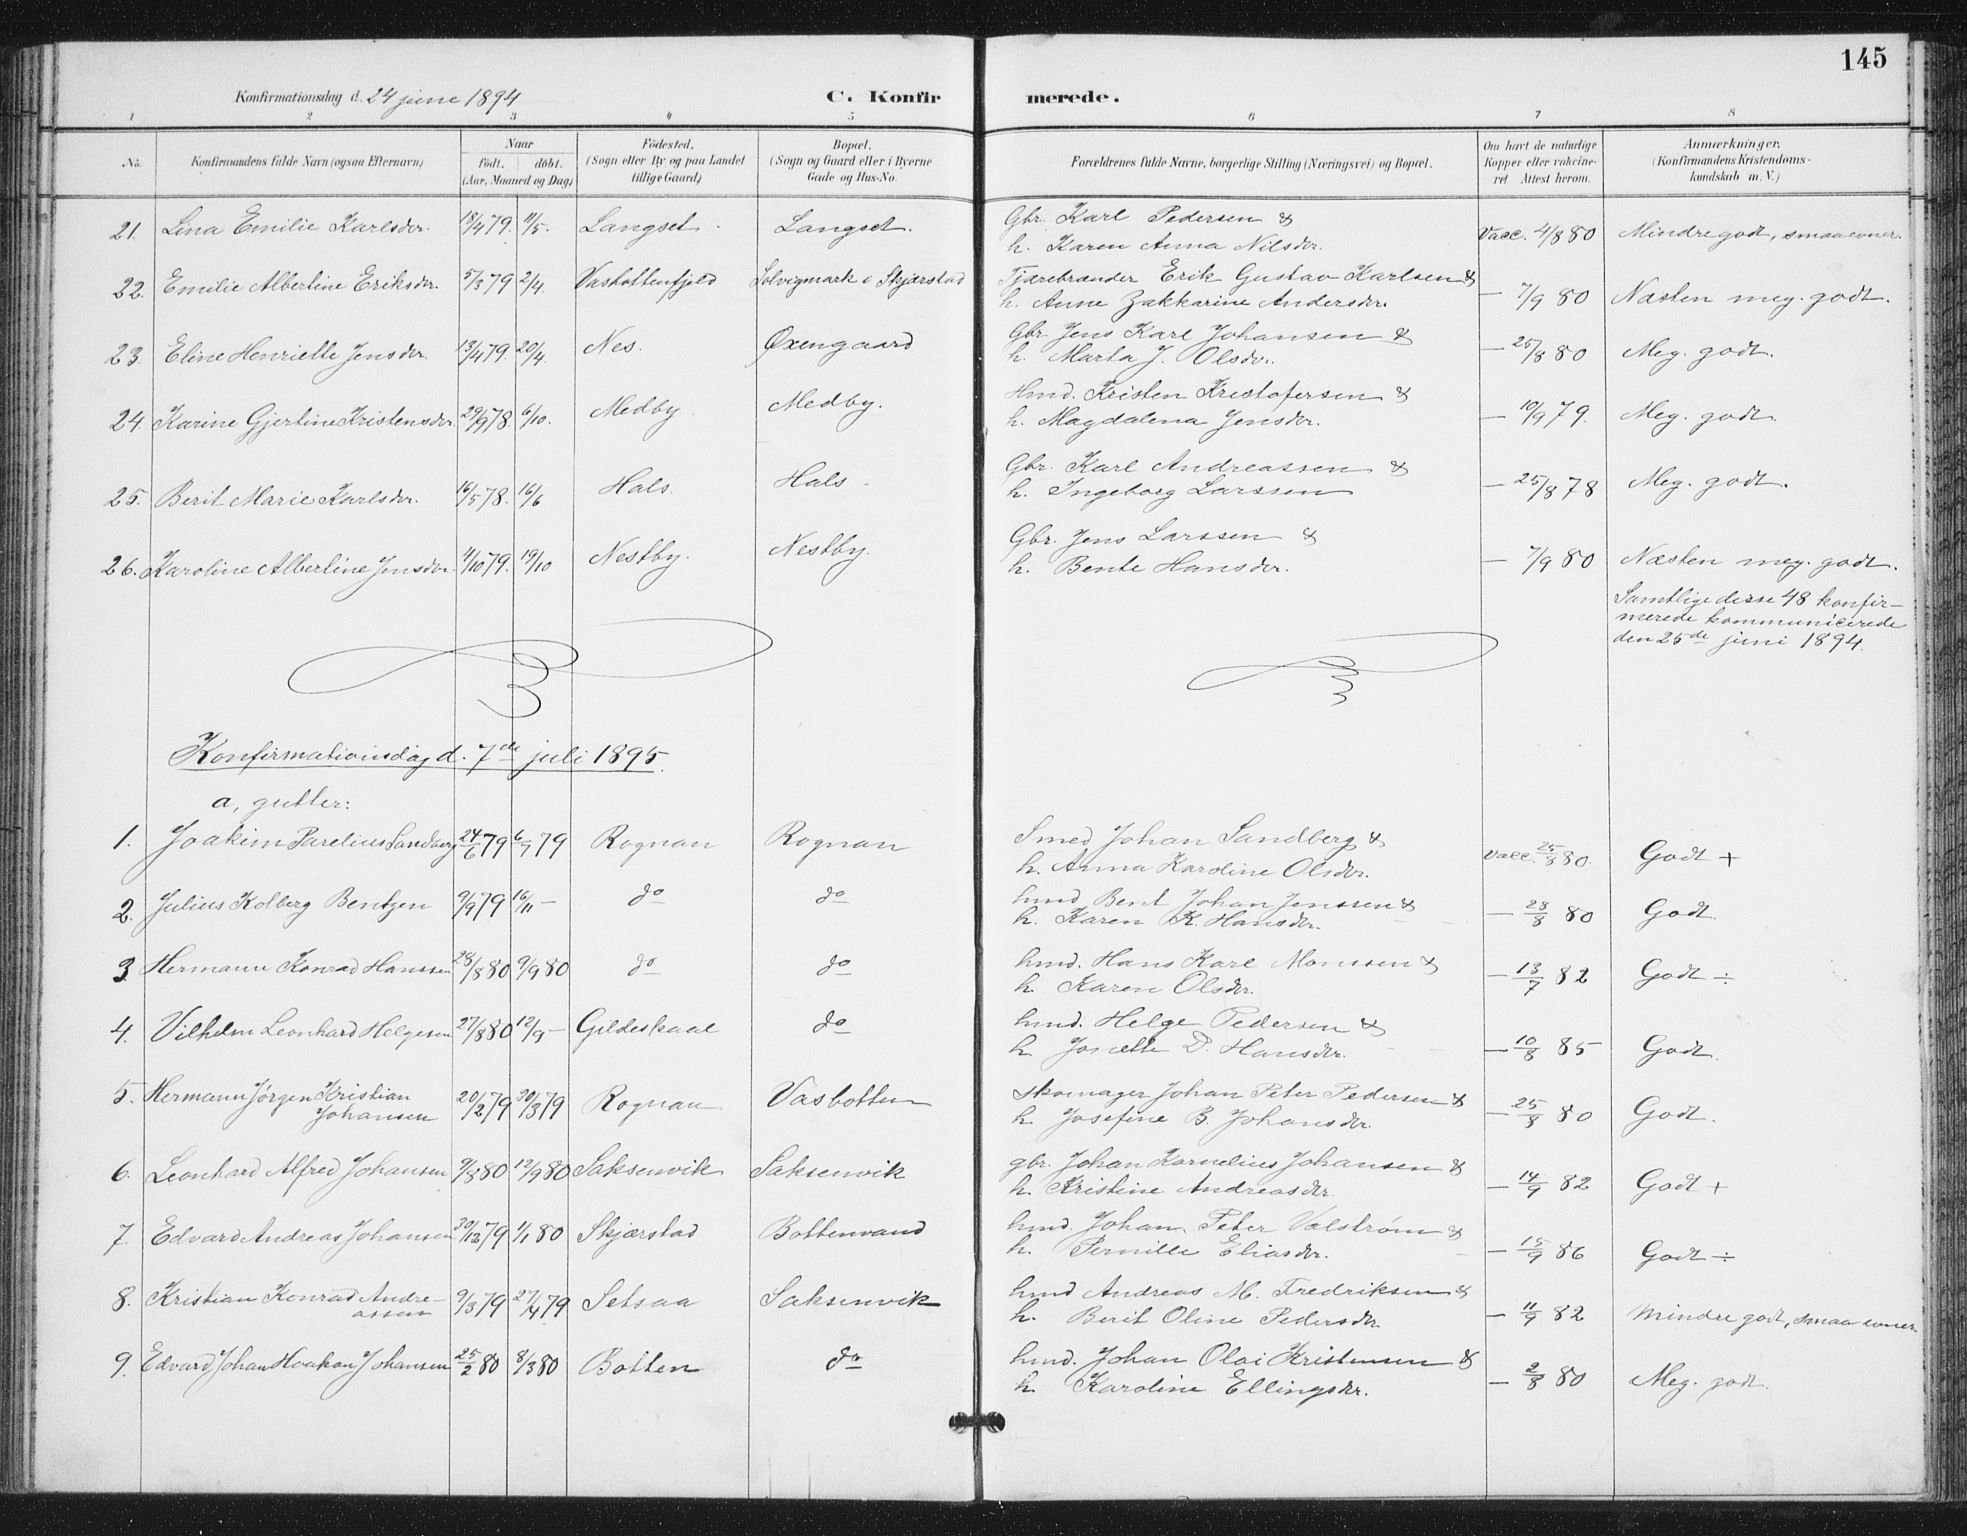 145
Konfirmationsdag d. 24 june 1894 C. Konfirmerede.
1 2 3 4 5 6 7 8
No. Konfirmandens fulde Navn (ogsaa Efternavn) Naar født. døbt. (Aar, Maaned og Dag) Fødested. (Sogn eller By og paa Landet tillige Gaard) Bopæl. (Sogn og Gaard eller i Byerne Gade og Hus-No. Forældrenes fulde Navne, borgerlige Stilling (Næringsvei) og Bopæl. Om havt de naturlige Kopper eller vakcineret Attest herom. Anmærkninger. (Konfirmandens Kristendomskundskab m. V.)
21. Lina Emilie Karlsdr. 18/4 79. 11/5. Langset. Langset. Gbr. Karl Pedersen &
h. Karen Anna Nilsdr. Vacc. 4/8 80 Mindre godt, smaaevner.
22. Emilie Albertine Eriksdr. 5/3 79 2/4. Vasbottenfjeld Solvigmark i Skjærstad Tjærebrænder Erik Gustav Karlsen &
h. Anne Zakkarine Andersdr. — 7/9 80 Næsten meg. godt.
23. Eline Henriette Jensdr. 13/4 79. 20/4 Nes. Øxengaard Gbr. Jens Karl Johansen &
h. Marta J. Olsdr. — 25/8 80 Meg. godt.
24. Karine Gjertine Kristensdr. 29/9 78 6/10. Medby. Medby. Hmd. Kristen Krestofersen &
h. Magdalena Jensdr. — 10/9 79. Meg. godt.
25. Berit Marie Karlsdr. 16/5 78. 16/6 Hals. Hals. Gbr. Karl Andreassen &
h. Ingeborg Larssen — 25/8 78 Meg. godt.
26. Karoline Albertine Jensdr. 4/10 79. 19/10 Nestby. Nestby. Gbr. Jens Larssen &
h. Bente Hansdr. — 7/9 80 Næsten meg. godt.
Samtlige disse 48 konfir-
merede kommunicerede
den 25de juni 1894.
Konfirmationsdag d. 7de juli 1895.
a, gutter:
1. Joakim Parelius Sandberg 24/6 79 6/7 79 Rognan Rognan Smed Johan Sandberg &
h. Anna Karoline Olsdr. Vacc. 25/8 80. Godt +
2. Julius Kolberg Bentzen 9/9 79 16/11 — do do hmd Bent Johan Jenssen &
h. Karen K. Hansdr. — 28/8 80 Godt.
3. Hermann Konrad Hanssen 28/8 80 9/9 80 do do hmd. Hans Karl Monssen &
h. Karen Olsdr. — 13/7 82 Godt ÷
4. Vilhelm Leonhard Helgesen 27/8 80 12/9 — Gildeskaal do hmd. Helge Pedersen &
h. Jonette D. Hansdr. — 10/8 85 Godt.
5. Hermann Jørgen Kristian
Johansen 20/2 79 30/3 79 Rognan Vasbotten Skomager Johan Peter Pedersen &
h. Josefine B. Johansdr. — 25/8 80 Godt.
6. Leonhard Alfred Johansen 9/8 80 12/9 80 Saksenvik Saksenvik gbr. Johan Kornelius Johansen &
h. Kristine Andreasdr. — 14/9 82 Godt +
7. Edvard Andreas Johansen 30/12 79 1/1 80 Skjærstad Bottenvand hmd. Johan Peter Valstrøm &
h. Pernille Eliasdr. — 15/9 86 Godt ÷
8. Kristian Konrad Andre-
assen 9/3 79 27/4 79 Setsaa Saksenvik hmd Andreas M. Fredriksen &
h. Berit Oline Pedersdr. — 11/9 82 Mindre godt, smaa evner
9. Edvard Johan Haakon Johansen 25/2 80 8/3 80 Botten do hmd. Johan Olai Kristensen &
h. Karoline Ellingsdr. — 2/8 80 Meg. godt.